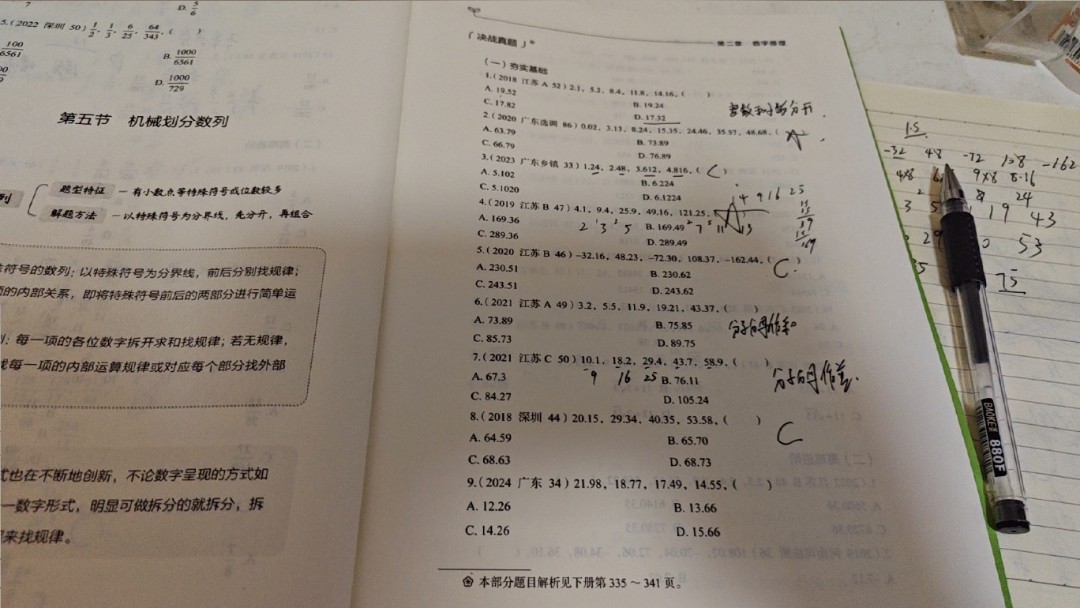 7
D. 5/6
5.(2022 深圳 50) 1/2, 1/3, 6/25, 64/343, ( )
100/6561
B. 1000/6561
D. 1000/729
第五节 机械划分数列
列
题型特征 — 有小数点等特殊符号或位数较多
解题方法 — 以特殊符号为分界线，先分开，再组合
符号的数列：以特殊符号为分界线，前后分别找规律；
的内部关系，即将特殊符号前后的两部分进行简单运
：每一项的各位数字拆开求和找规律；若无规律，
找每一项的内部运算规律或对应每个部分找外部
式也在不断地创新，不论数字呈现的方式如
一数字形式，明显可做拆分的就拆分，拆
来找规律。
第二章 数字推理
「决战真题」
(一) 夯实基础
1.(2018 江苏 A 52) 2.1, 5.2, 8.4, 11.8, 14.16, ( )
A. 19.52
B. 19.24
C. 17.82
D. 17.32
2.(2020 广东选调 86) 0.02, 3.13, 8.24, 15.35, 24.46, 35.57, 48.68, ( )
A. 63.79
B. 73.89
C. 66.79
D. 76.89
3.(2023 广东乡镇 33) 1.24, 2.48, 3.612, 4.816, ( )
C
A. 5.102
B. 6.224
C. 5.1020
D. 6.1224
4.(2019 江苏 B 47) 4.1, 9.4, 25.9, 49.16, 121.25,
4 9 16 25
A. 169.36
B. 169.49
2 3 5 7 11 13
C. 289.36
D. 289.49
5.(2020 江苏 B 46) -32.16, 48.23, -72.30, 108.37, -162.44, ( )
C.
A. 230.51
B. 230.62
C. 243.51
D. 243.62
6.(2021 江苏 A 49) 3.2, 5.5, 11.9, 19.21, 43.37, ( )
A. 73.89
B. 75.85
C. 85.73
D. 89.75
7.(2021 江苏 C 50) 10.1, 18.2, 29.4, 43.7, 58.9, ( )
9 16 25
A. 67.3
B. 76.11
C. 84.27
D. 105.24
8.(2018 深圳 44) 20.15, 29.34, 40.35, 53.58, ( )
C
A. 64.59
B. 65.70
C. 68.63
D. 68.73
9.(2024 广东 34) 21.98, 18.77, 17.49, 14.55, ( )
A. 12.26
B. 13.66
C. 14.26
D. 15.66
本部分题目解析见下册第 335～341 页。
1.5
-32 48 -72 108 -162
19 43
53
75
BAOKE 880F